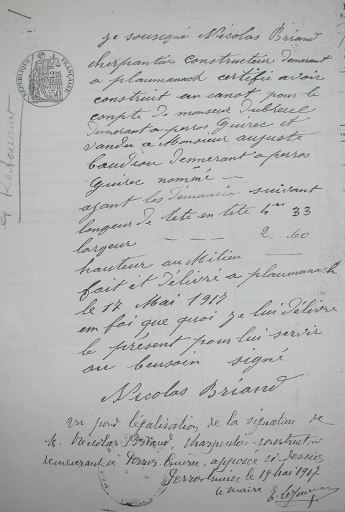 je sousigné Nicolas Briand
cherpantier constructeur demeurant
a ploumanach certifie avoir
construit un canot pour le
compte de monsieur
demeurant a perros Guirec et
vandu a Monsieur auguste
demeurant a perros
Guirec nommé —
ayant les suivant
longeur de tete en tete 4 m 33
largeur — — 2 . 60
hauteur au Milieu —
fait et délivré a ploumanach
le 17 Mai 1917
em foi que quoi je lui délivre
le présent pour lui servir
au beusoin signé
Nicolas Briand
Vu pour légalisation de la signature de
M. Nicolas Briand, charpentier-constructeur
demeurant à Perros-Guirec, apposée ci-dessus
Perros-Guirec le 19 mai 1917
Le maire
RÉPUBLIQUE FRANÇAISE